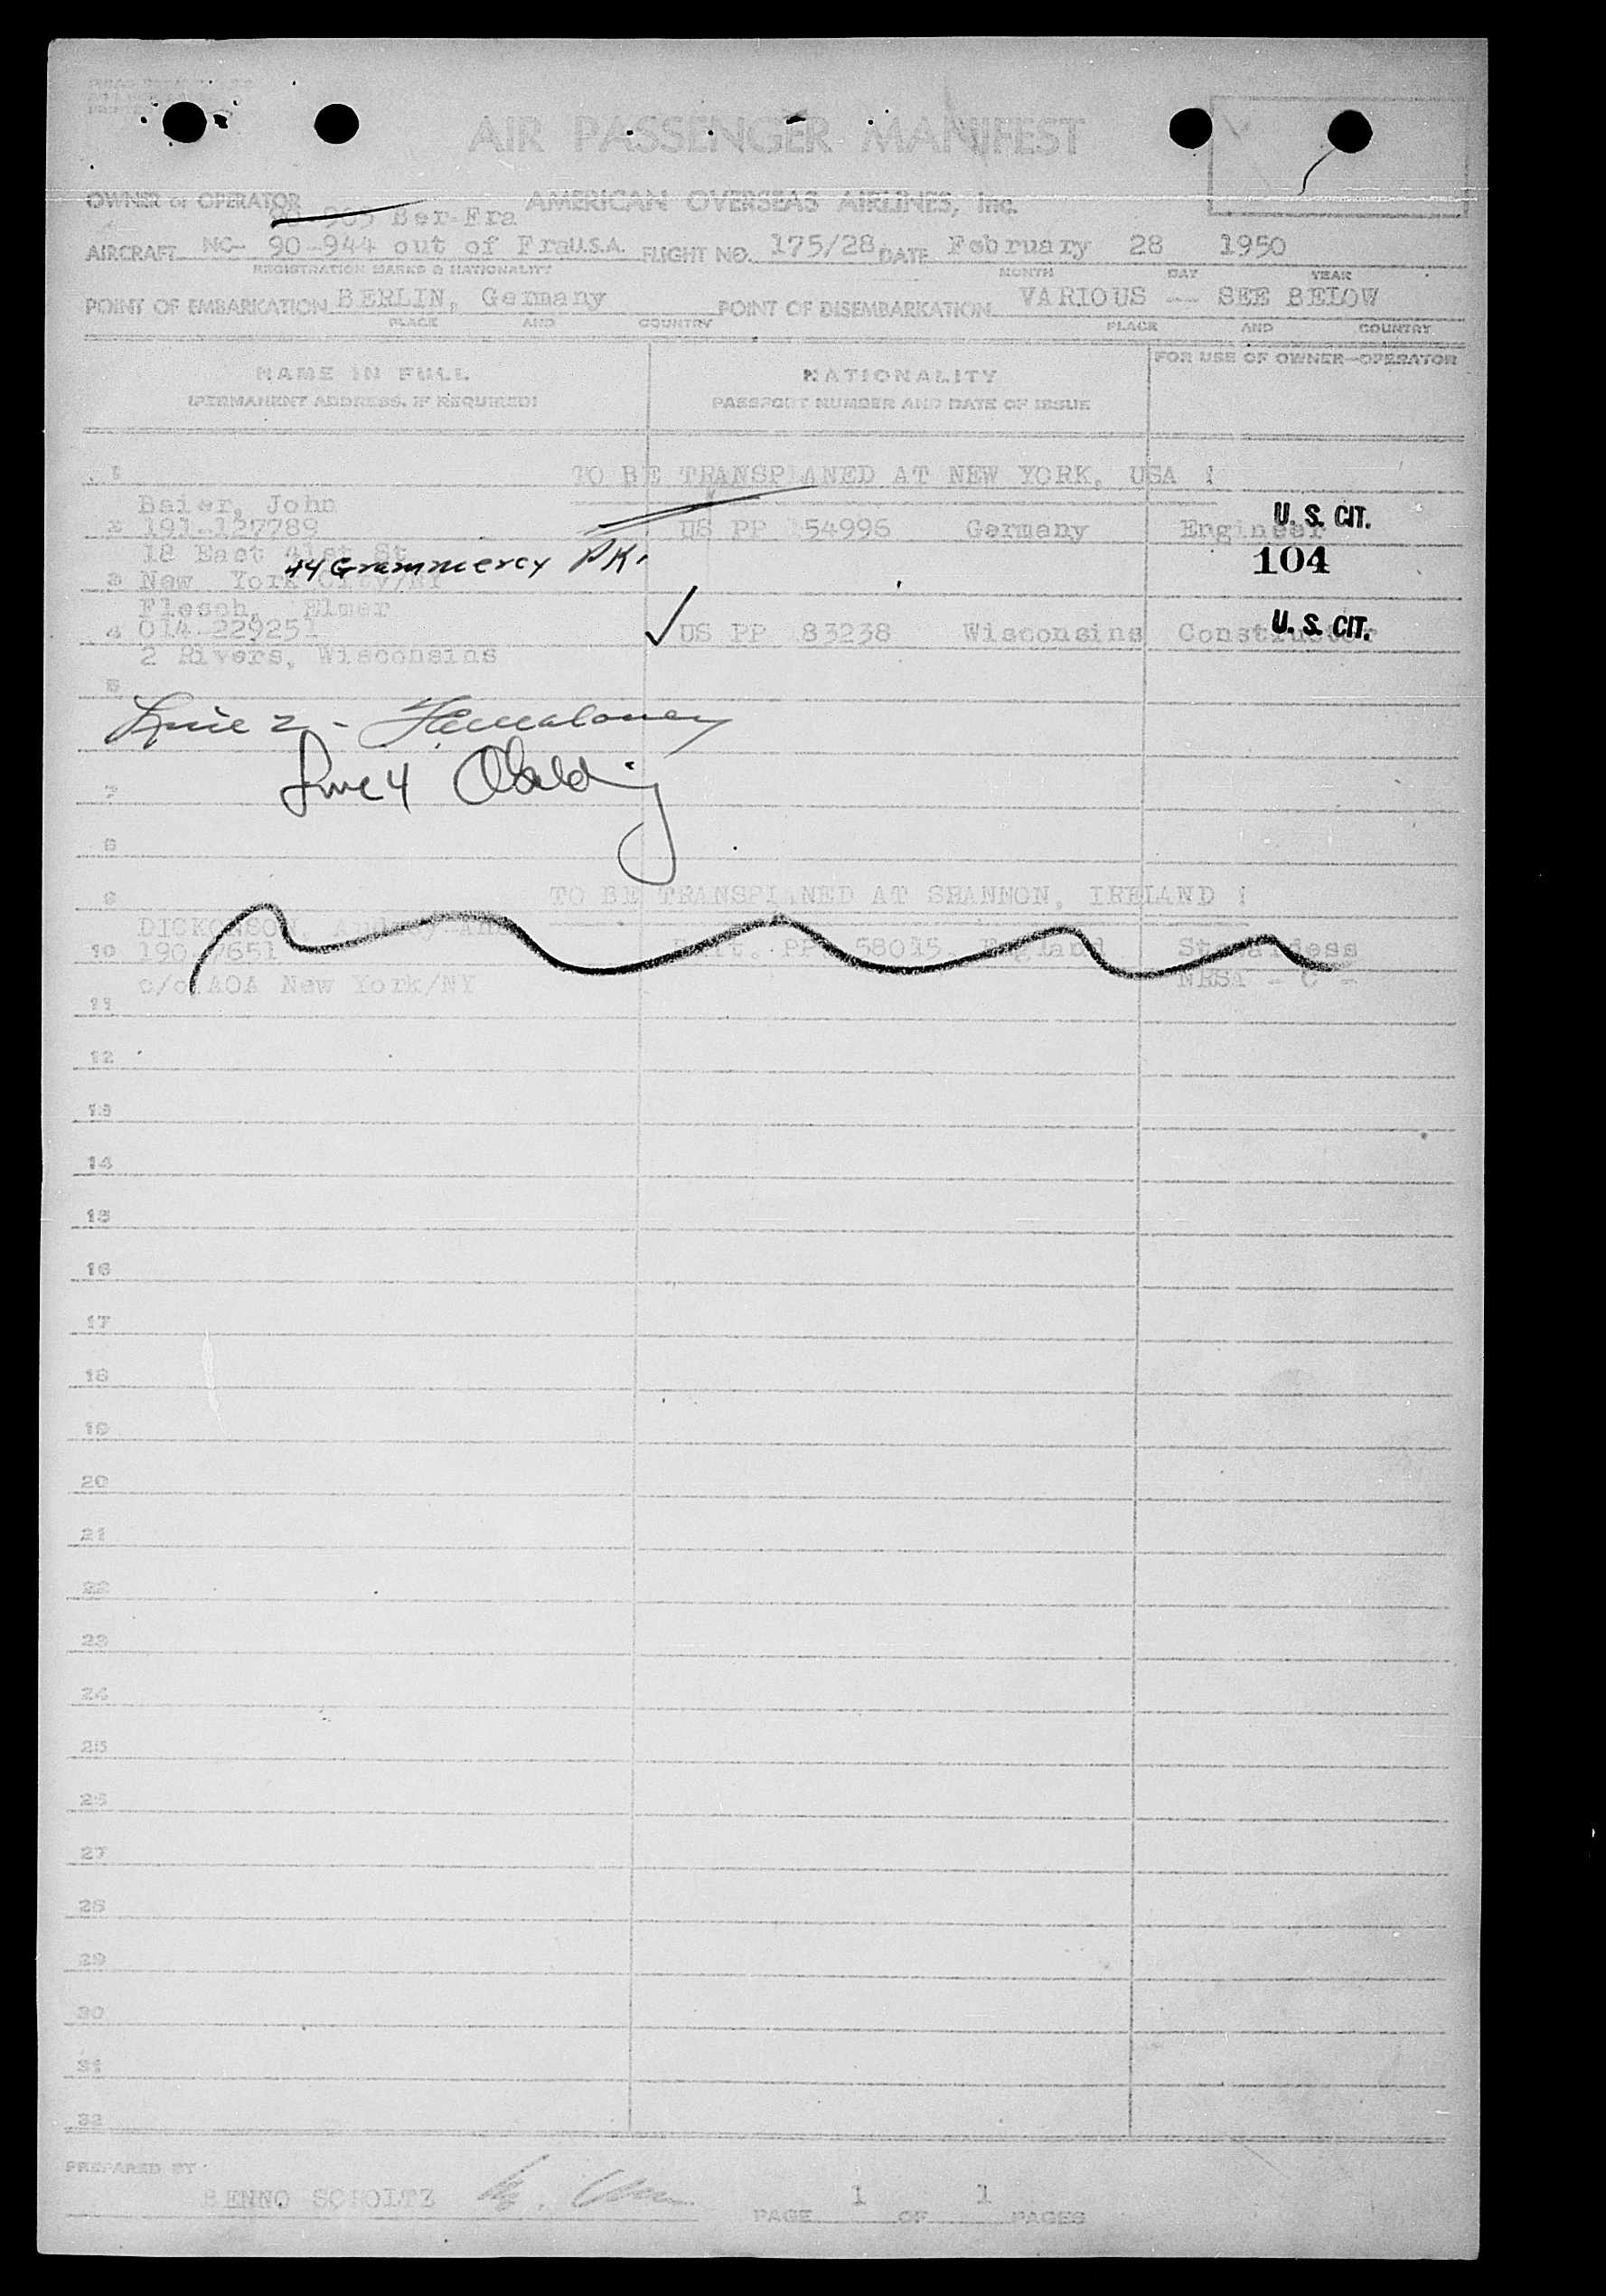 AIR PASSENGER MANIFEST
OWNER or OPERATOR AMERICAN OVERSEAS AIRLINES, Inc.
90-903 Ber-Fra
AIRCRAFT NC- 90-944 out of Fra U.S.A. FLIGHT NO. 175/28 DATE February 28 1950
REGISTRATION MARKS & NATIONALITY MONTH DAY YEAR
POINT OF EMBARKATION BERLIN, Germany POINT OF DISEMBARKATION VARIOUS -- SEE BELOW
PLACE AND COUNTRY PLACE AND COUNTRY
FOR USE OF OWNER-OPERATOR
NAME IN FULL NATIONALITY
(PERMANENT ADDRESS, IF REQUIRED) PASSPORT NUMBER AND DATE OF ISSUE
1 TO BE TRANSPLANED AT NEW YORK, USA :
Baier, John
2 191-127789 US PP 154996 Germany Engineer U. S. CIT.
18 East 41st St
44 Grammercy PK. 104
3 New York City/NY
Flesch, Elmer
4 014-229251 US PP 83238 Wisconsins Constructor U. S. CIT.
2 Rivers, Wisconsins
5
Line 2 -
7
Line 4
8
9 TO BE TRANSPLANED AT SHANNON, IRELAND :
DICKONSON,
10 PP 58015 England Stewardess
c/o AOA New York/NY NRSA - C -
11
12
13
14
15
16
17
18
19
20
21
22
23
24
25
26
27
28
29
30
31
32
PREPARED BY
BENNO SCHOLTZ
PAGE 1 OF 1 PAGES